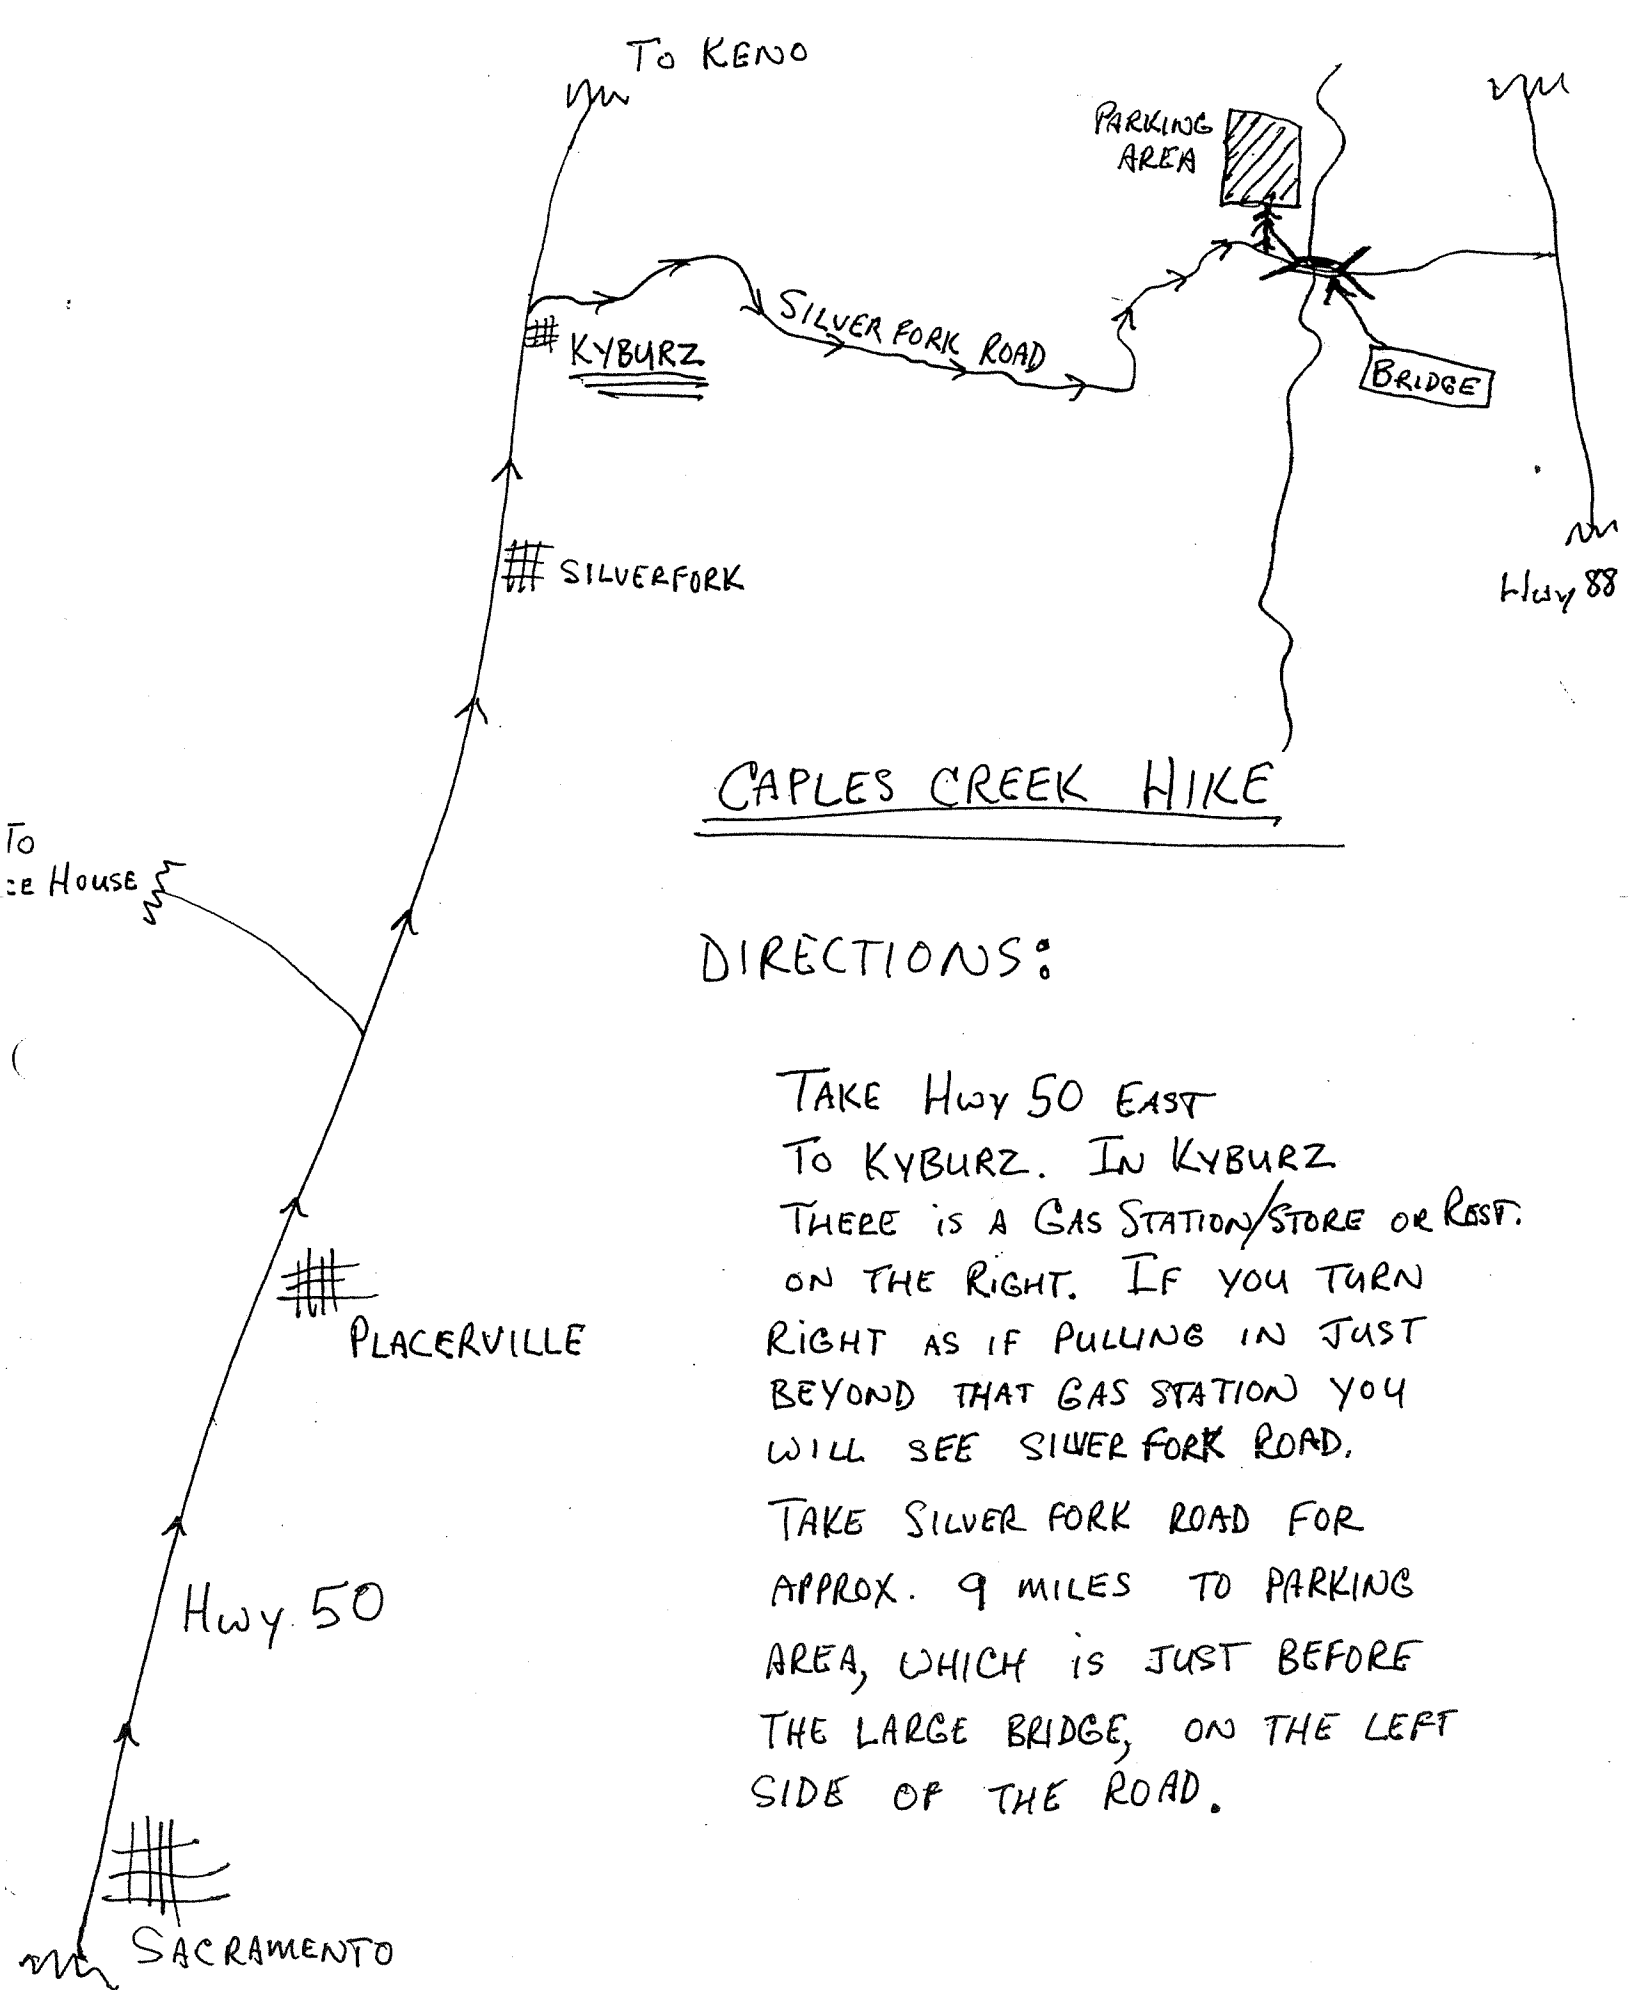 To KENO
PARKING
AREA
SILVER FORK ROAD
KYBURZ
BRIDGE
SILVERFORK
Hwy 88
CAPLES CREEK HIKE
To
House
DIRECTIONS:
TAKE Hwy 50 EAST
To KYBURZ. IN KYBURZ
THERE is A GAS STATION/STORE OR REST.
ON THE RIGHT. IF YOU TURN
RIGHT AS IF PULLING IN JUST
BEYOND THAT GAS STATION YOU
WILL SEE SILVER FORK ROAD.
PLACERVILLE
TAKE SILVER FORK ROAD FOR
APPROX. 9 MILES TO PARKING
AREA, WHICH is JUST BEFORE
THE LARGE BRIDGE, ON THE LEFT
SIDE OF THE ROAD.
Hwy. 50
SACRAMENTO